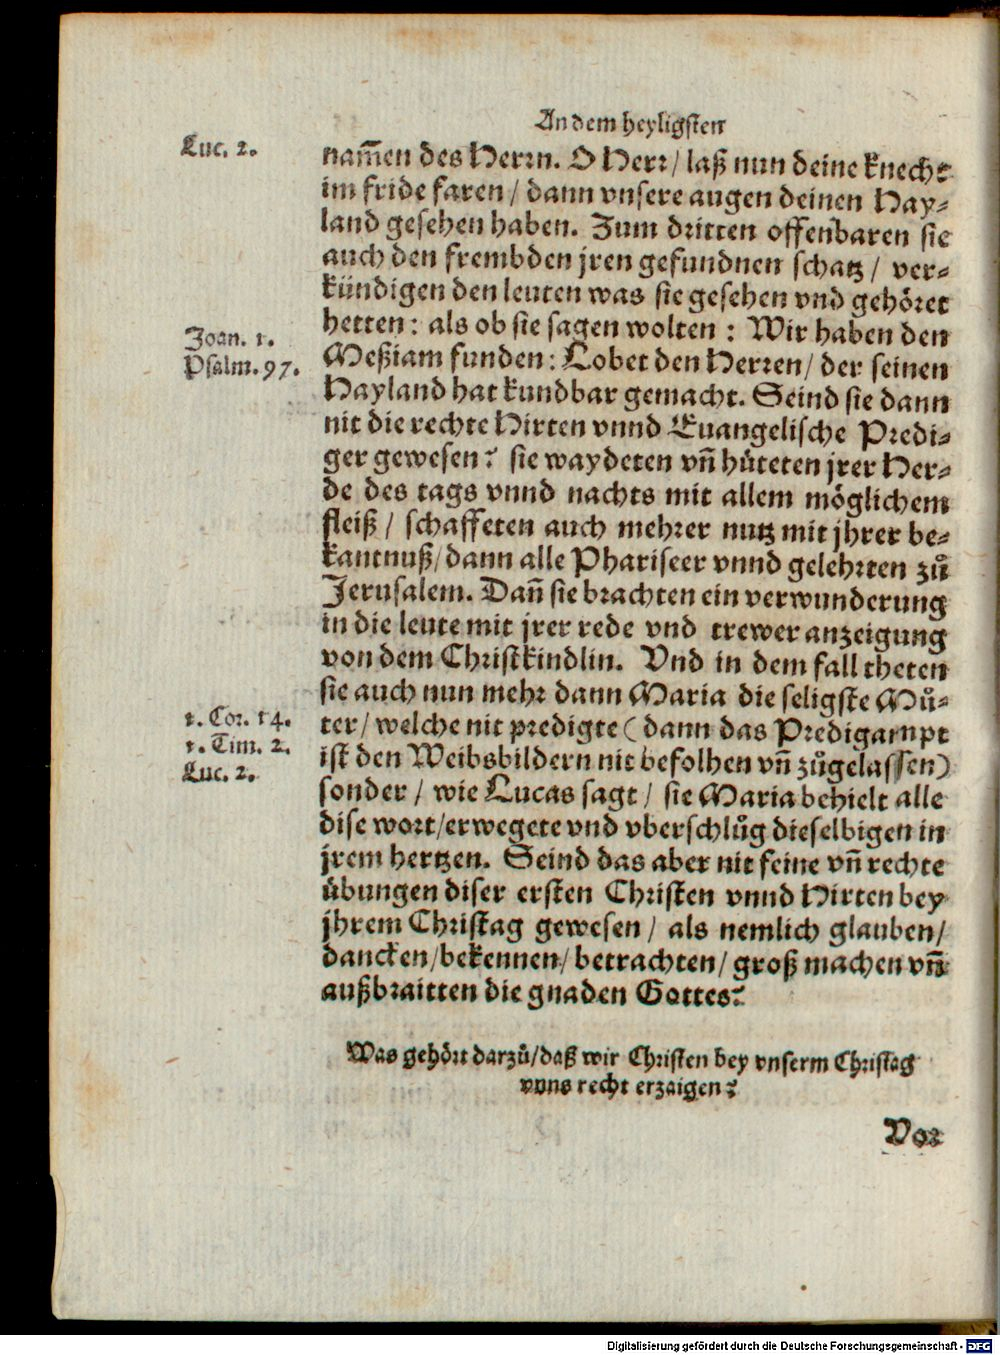 An dem heyligsten
Luc. 2.
nam̃en des Herrn. O Herr / laß nun deine knecht
im fride faren / dann vnsere augen deinen Hay-
land gesehen haben. Zum dritten offenbaren sie
auch den frembden jren gefundnen schatz / ver-
kündigen den leuten was sie gesehen vnd gehöret
hetten: als ob sie sagen wolten: Wir haben den
Joan. 1.
Meßiam funden: Lobet den Herren / der seinen
Psalm. 97.
Hayland hat kundbar gemacht. Seind sie dann
nit die rechte Hirten vnnd Euangelische Predi-
ger gewesen? sie waydeten vn̄ hůteten jrer Her-
de des tags vnnd nachts mit allem möglichem
fleiß / schaffeten auch mehrer nutz mit jhrer be-
kantnuß / dann alle Phariseer vnnd gelehrten zů
Jerusalem. Dan̄ sie brachten ein verwunderung
in die leute mit jrer rede vnd trewer anzeigung
von dem Christkindlin. Vnd in dem fall theten
sie auch nun mehr dann Maria die seligste Můͦ-
1. Cor. 14.
ter / welche nit predigte (dann das Predigampt
1. Tim. 2.
ist den Weibsbildern nit befolhen vn̄ zůgelassen)
Luc. 2.
sonder / wie Lucas sagt / sie Maria behielt alle
dise wort / erwegete vnd vberschlůg dieselbigen in
jrem hertzen. Seind das aber nit feine vn̄ rechte
übungen diser ersten Christen vnnd Hirten bey
jhrem Christag gewesen / als nemlich glauben /
dancken / bekennen / betrachten / groß machen vn̄
außbraitten die gnaden Gottes?
Was gehört darzů / daß wir Christen bey vnserm Christag
vnns recht erzaigen?
Vor
Digitalisierung gefördert durch die Deutsche Forschungsgemeinschaft - DFG